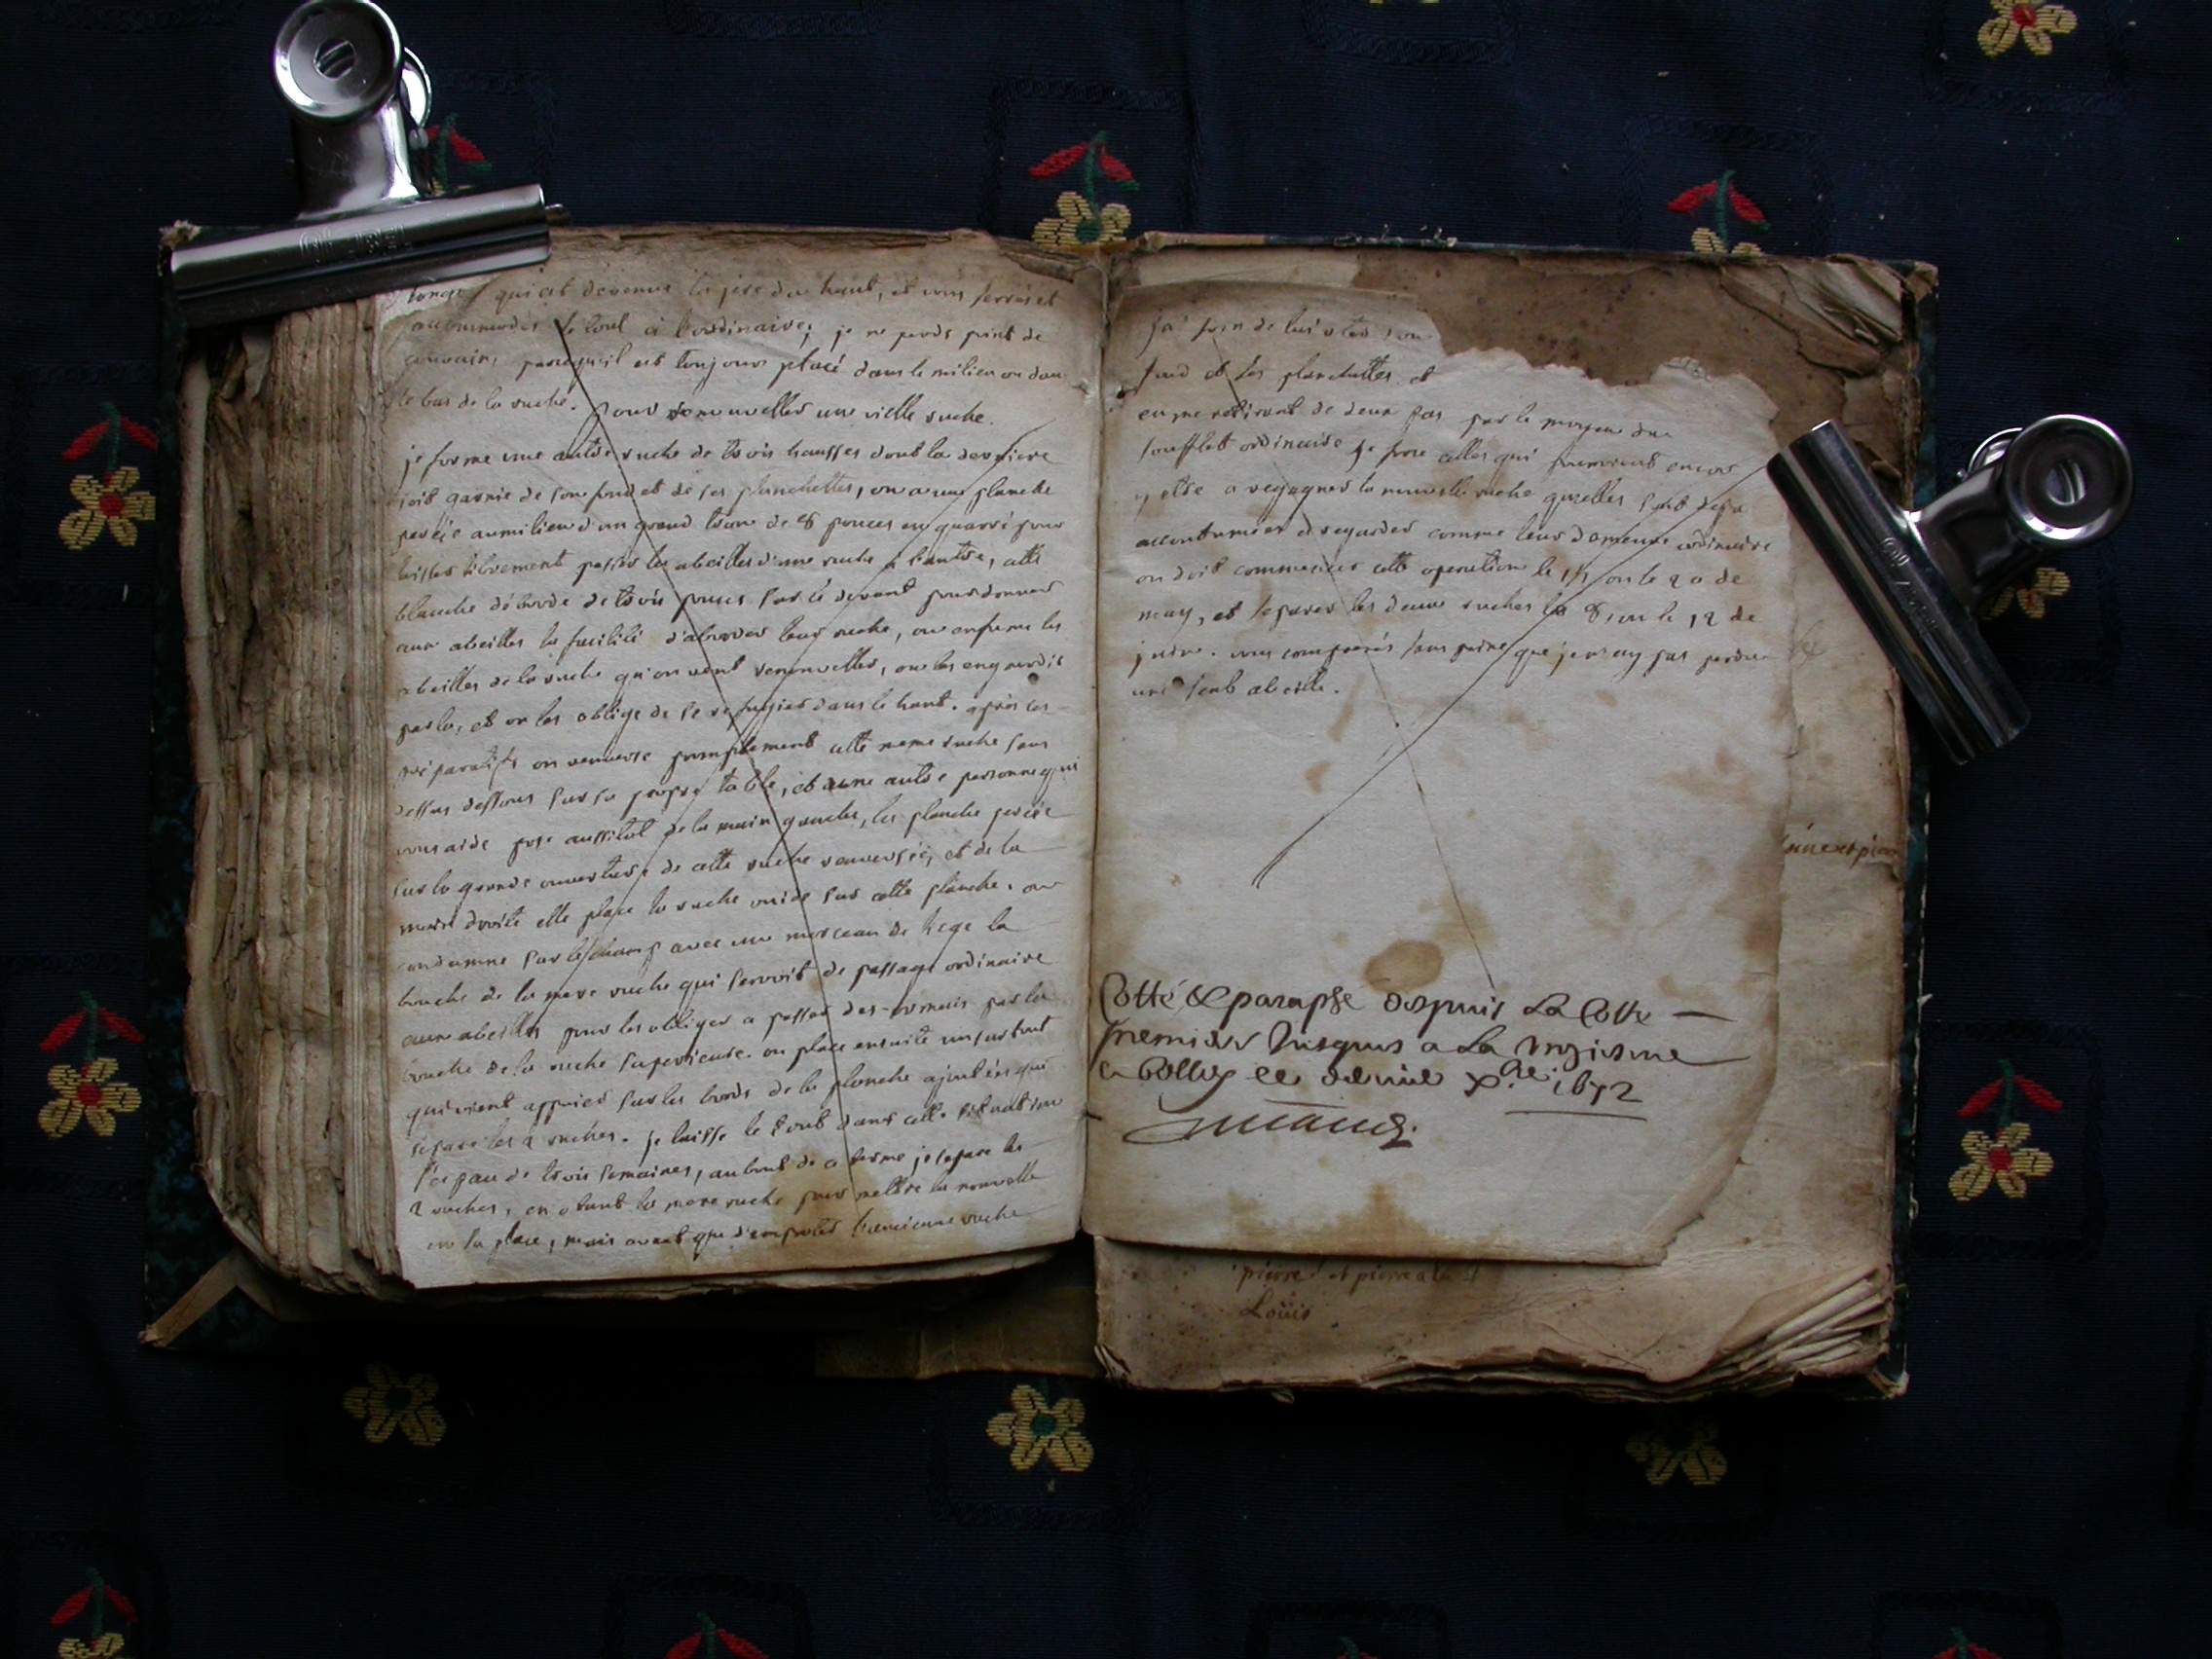 qui est devenue la 1ere du haut, et vous serrés et
accommodés le tout a l'ordinaire; je ne perds point de
couvain, parcequ'il est toujours placé dans le milieu ou dans
le bas de la ruche. pour renouveller une vielle ruche.
je forme une autre ruche de trois hausses dont la derniere
soit garnie de son fond et de ses planchettes, on a une planche
percée au milieu d'un grand trou de 8 pouces en quarré pour
laisser librement passer les abeilles d'une ruche a l'autre, cette
planche déborde de trois pouces sur le devant pour donner
aux abeilles la facilité d'aborder leur ruche, on enfume les
abeilles de la ruche qu'on veut renouveller, on les engourdit
par la, et on les oblige de se refugier dans le haut. après ces
préparatifs on renverse promptement cette meme ruche sens
dessus dessous sur sa propre table, et une autre personne qui
vous aide pose aussitot de la main gauche, la planche percée
sur la grande ouverture de cette ruche renversée, et de la
main droite elle place la ruche vuide sur cette planche. on
condamne sur le champ avec un morceau de liege la
bouche de la mere ruche qui servoit de passage ordinaire
aux abeilles pour les obliger a passer des-ormais par la
bouche de la ruche superieure. on place ensuite un surtout
qui vient appuier sur les bords de la planche qui
separe les 2 ruches. je laisse le tout dans cette situation
l'espau de trois semaines, au bout de ce terme je separe les
2 ruches, en otant la mere ruche pour mettre la nouvelle
en sa place, mais avant que d'emporter l'ancienne ruche
j'ai soin de lui oter son
fond et les planchettes et
en me retirant de deux pas par le moyen du
soufflet ordinaire je force celles qui pourroient encor
y etre a regagner la nouvelle ruche qu'elles sont deja
accoutumées a regarder comme leur demeure ordinaire
on doit commencer cette operation le 15 ou le 20 de
may, et separer les deux ruches le 8 ou le 12 de
juin. vous comprenés sans peine que je n'ay pas perdu
une seule abeille.
Cotté & paraphé depuis La Cotte
premier Jusques a La
ce 1672
pierre et pierre
Louis